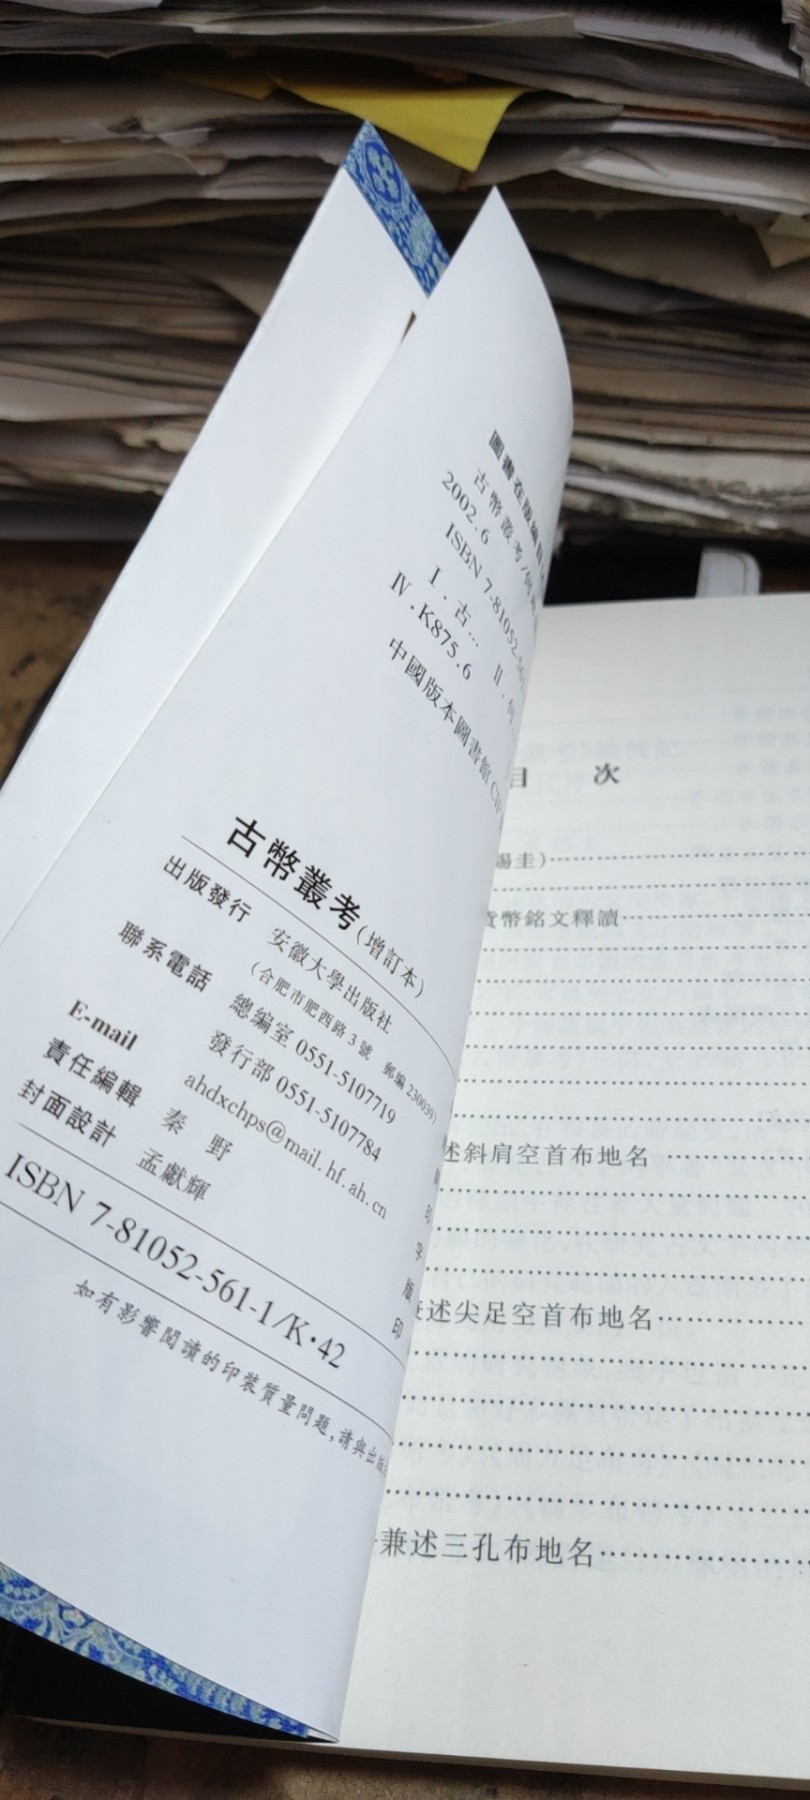 圖書在版編目
古幣叢考/何
2002.6
ISBN 7-81052-561
Ⅰ.古… Ⅱ.何
Ⅳ.K875.6
中國版本圖書館CIP
古幣叢考(增訂本)
出版發行 安徽大學出版社
(合肥市肥西路3號 郵編230039)
聯系電話 總編室 0551-5107719
發行部 0551-5107784
E-mail ahdxchps@mail.hf.ah.cn
責任編輯 秦 野
封面設計 孟獻輝
印
字
版
印
ISBN 7-81052-561-1/K·42
如有影響閱讀的印裝質量問題,請與出版
目 次
錫圭)
貨幣銘文釋讀
述斜肩空首布地名
述尖足空首布地名
兼述三孔布地名